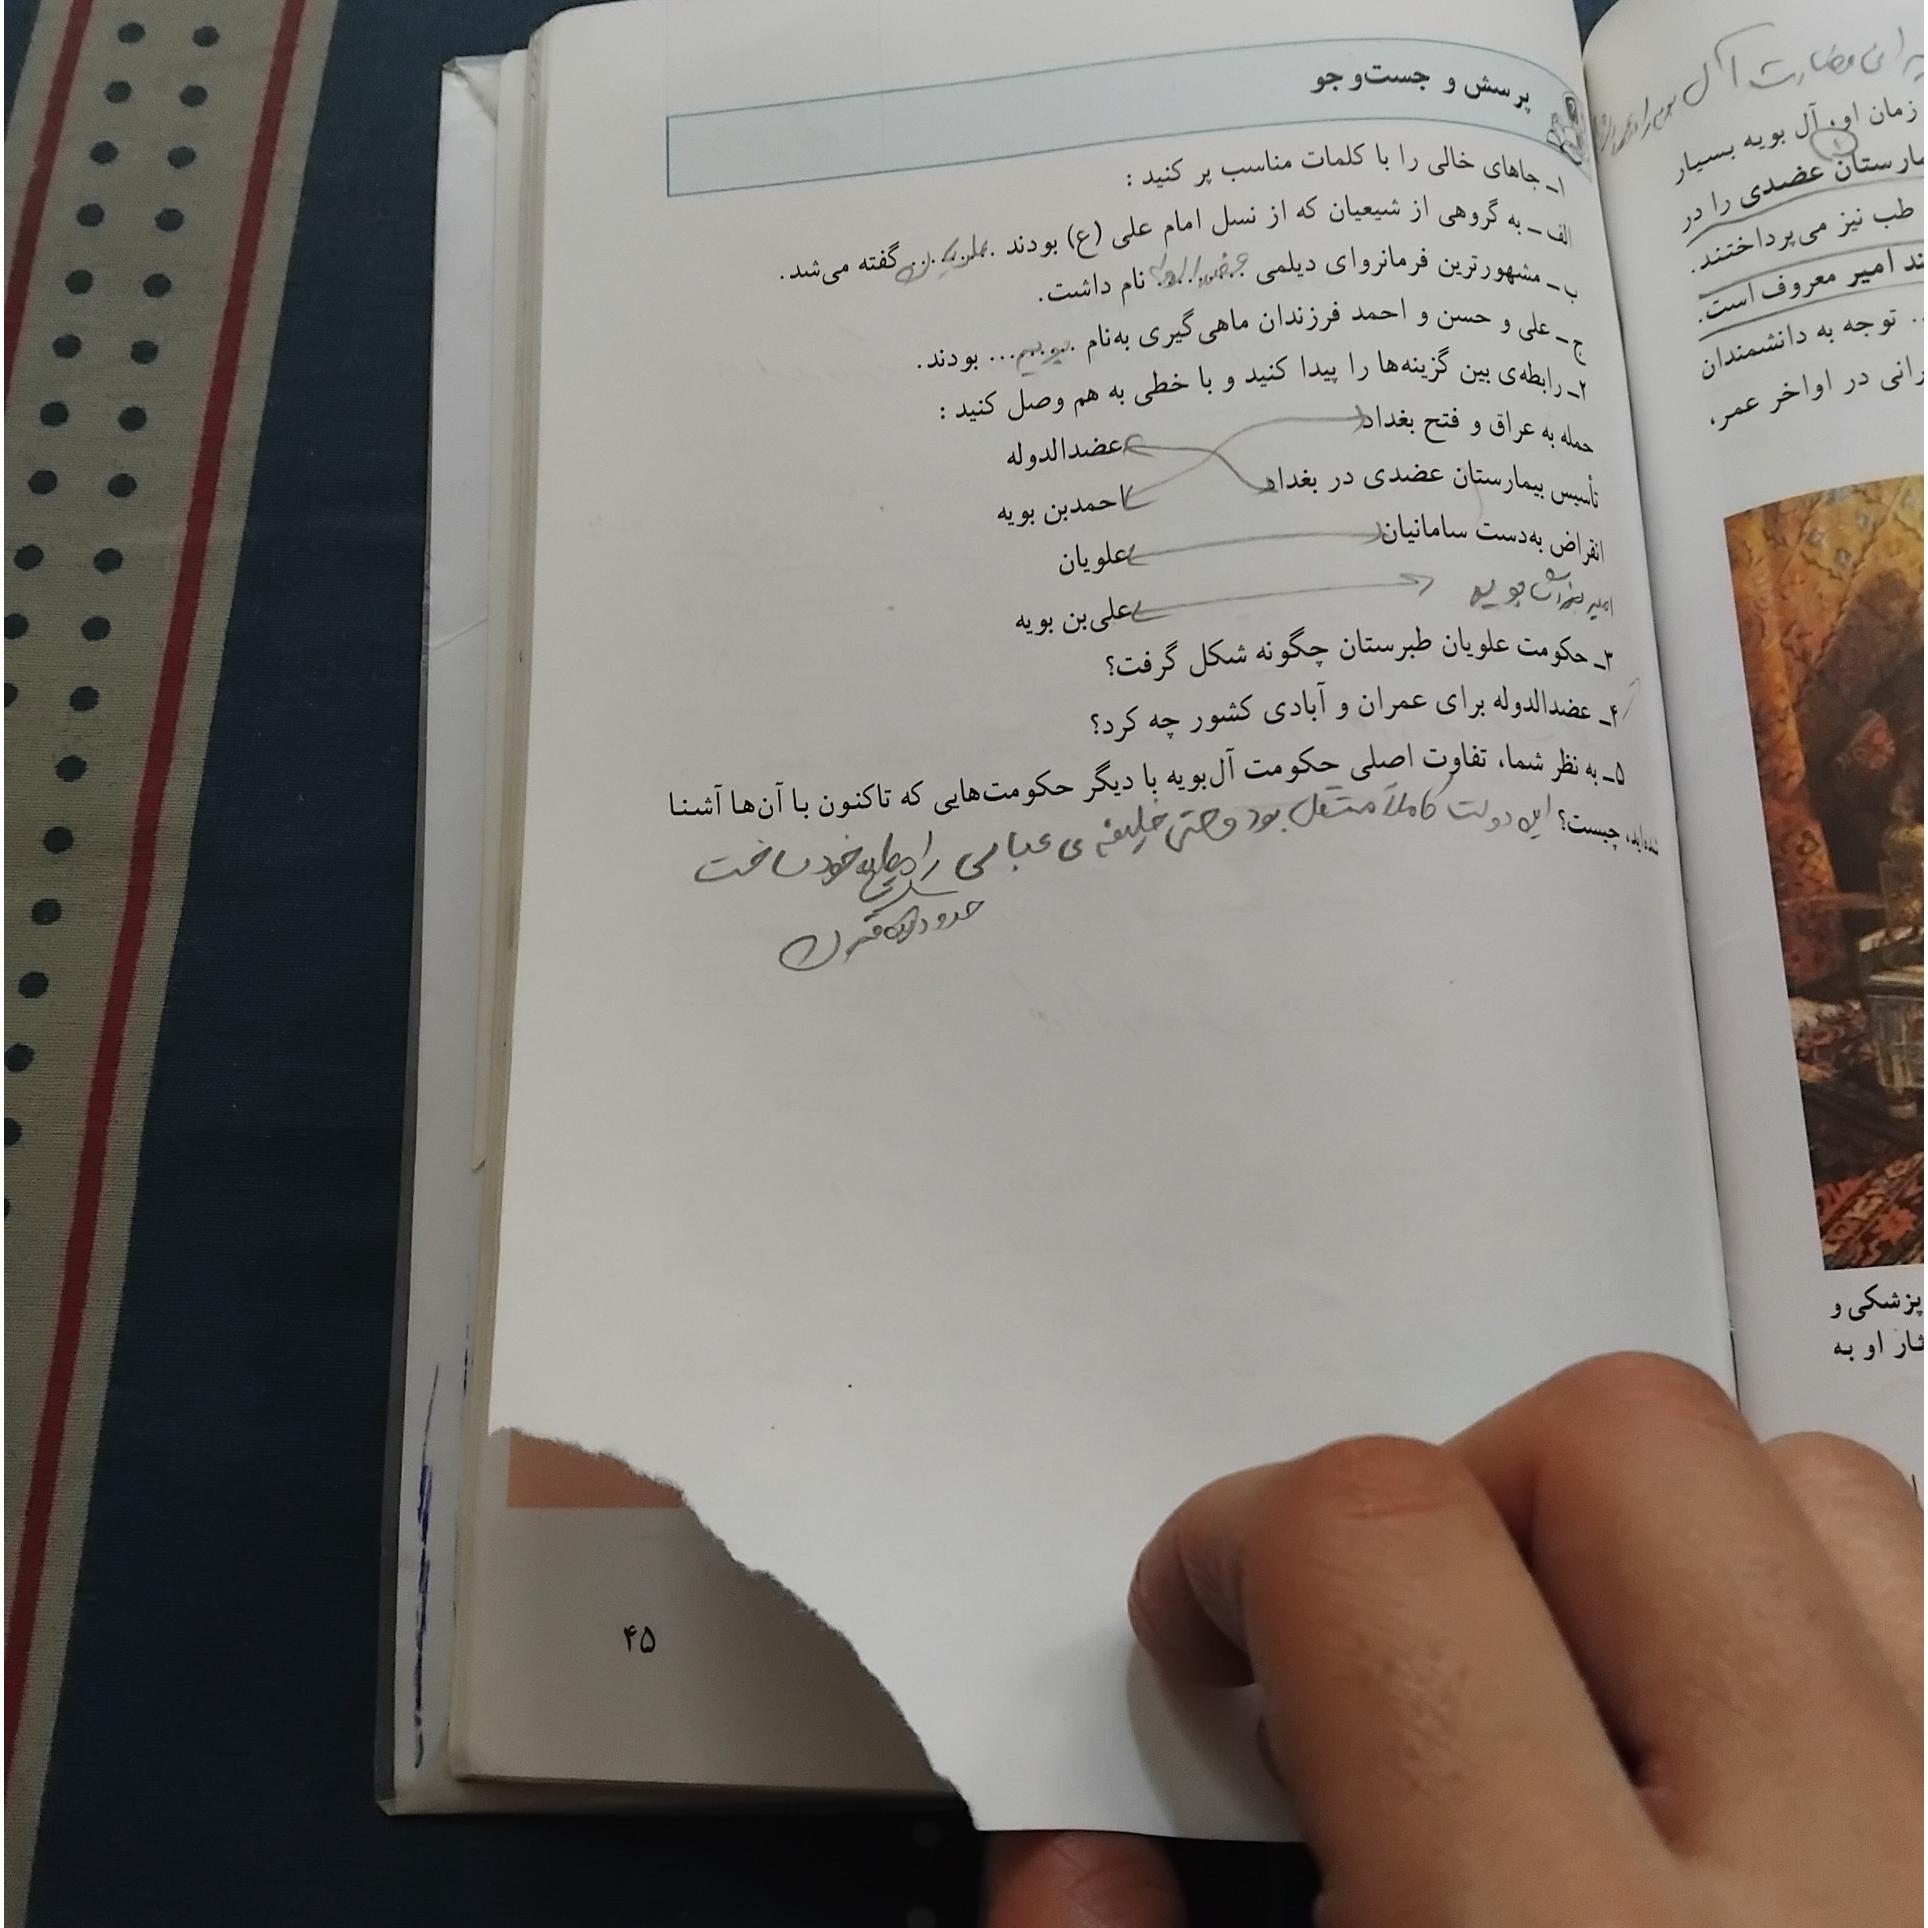 پرسش و جست‌وجو
۱ـ جاهای خالی را با کلمات مناسب پر کنید :
الف ـ به گروهی از شیعیان که از نسل امام علی (ع) بودند علویان گفته می‌شد.
ب ـ مشهورترین فرمانروای دیلمی عضدالدوله نام داشت.
ج ـ علی و حسن و احمد فرزندان ماهی‌گیری به‌نام ......... بودند.
۲ـ رابطه‌ی بین گزینه‌ها را پیدا کنید و با خطی به هم وصل کنید :
حمله به عراق و فتح بغداد عضدالدوله
تأسیس بیمارستان عضدی در بغداد احمدبن بویه
انقراض به‌دست سامانیان علویان
امیر بویه علی‌بن بویه
۳ـ حکومت علویان طبرستان چگونه شکل گرفت؟
۴ـ عضدالدوله برای عمران و آبادی کشور چه کرد؟
۵ـ به نظر شما، تفاوت اصلی حکومت آل‌بویه با دیگر حکومت‌هایی که تاکنون با آن‌ها آشنا
شده‌اید، چیست؟ این دولت کاملاً مستقل بود و حتی خلیفه ی عباسی را خود ساخت
حدود قرن
۴۵
زمان او، آل بویه بسیار
مارستان عضدی را در
طب نیز می‌پرداختند.
ند امیر معروف است.
. توجه به دانشمندان
رانی در اواخر عمر،
پزشکی و
ثار او به